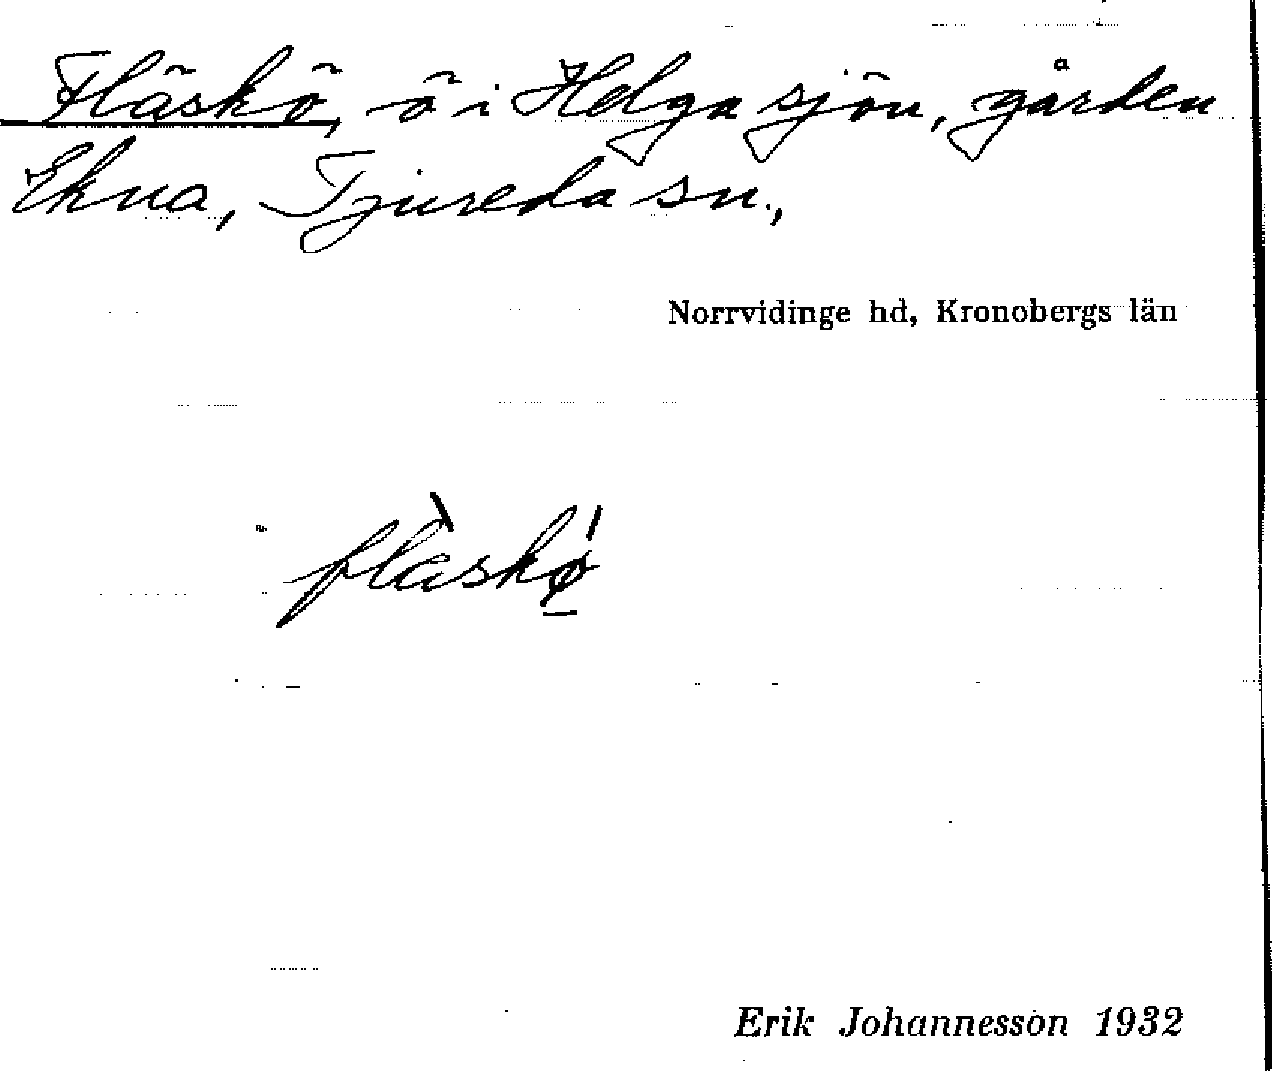 Fläskö, ö i Helgasjön, gården
Ekna, Tjureda sn.,
Norrvidinge hd, Kronobergs län
flàskǿ
Erik Johannesson 1932